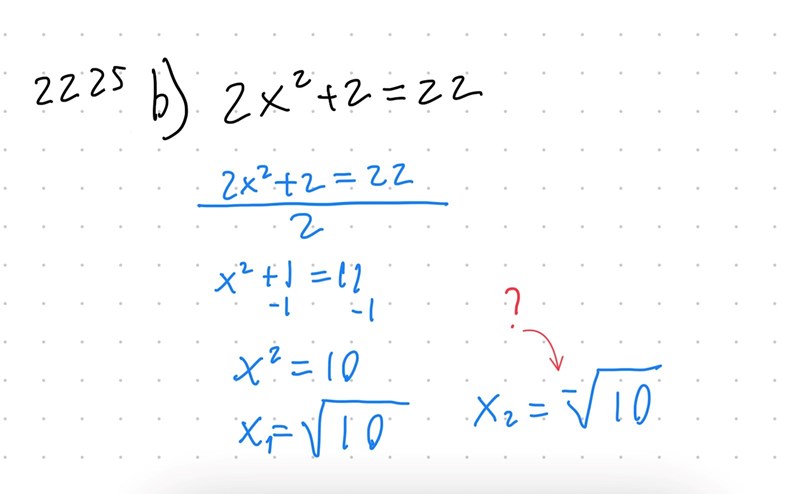 2225 b) 2x² + 2 = 22
2x² + 2 = 22
2
x² + 1 = 11
-1 -1
?
x² = 10
x₁ = √10 x₂ = -√10